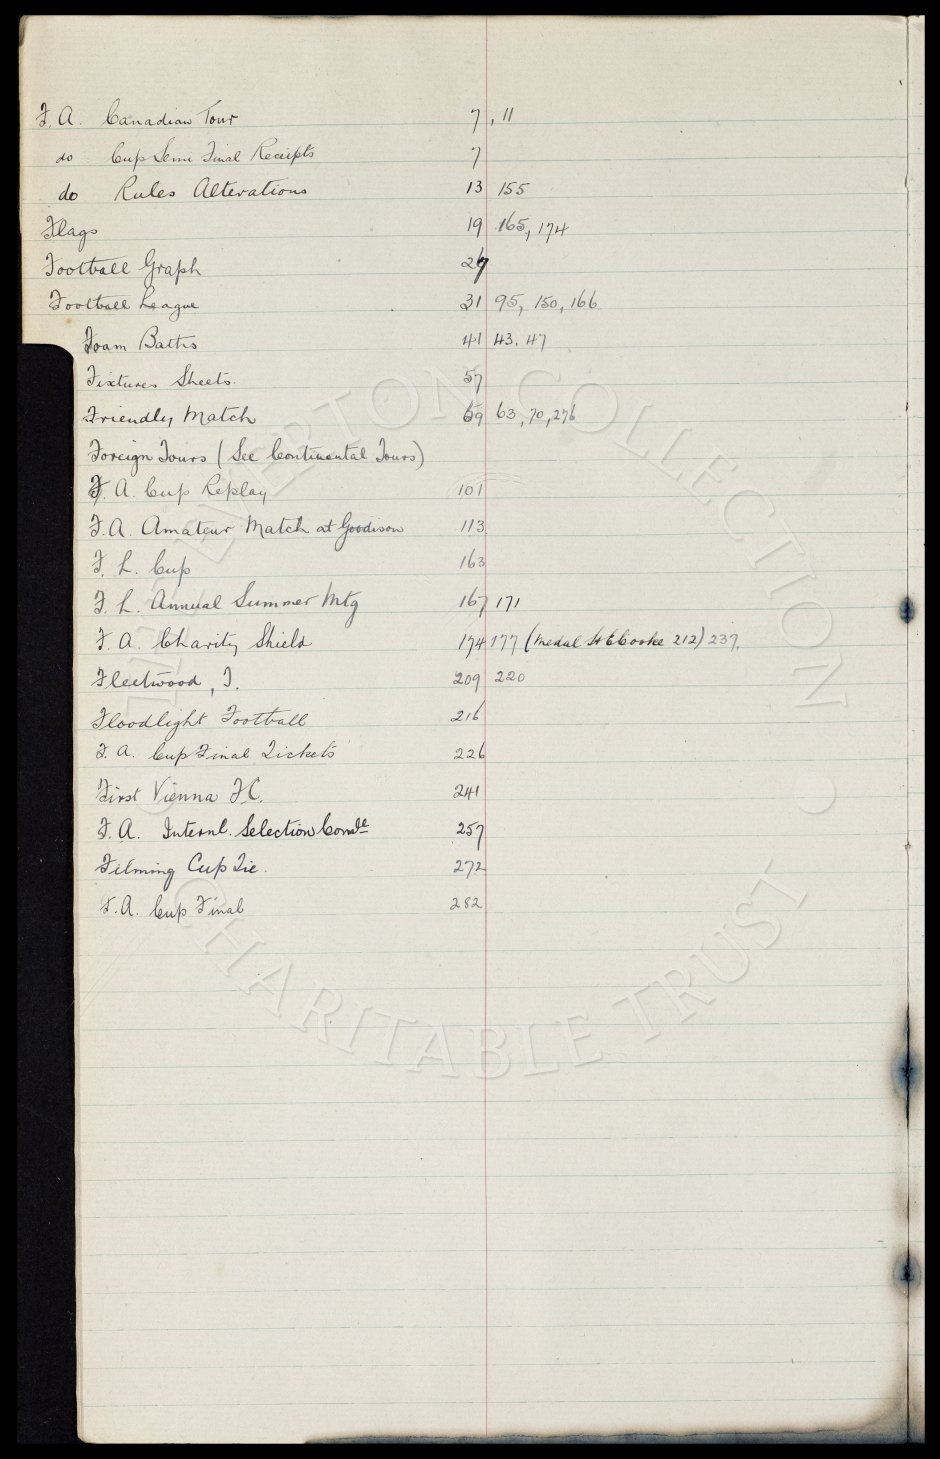 F. A. Canadian Tour 7, 11
do Cup Semi Final Receipts 7
do Rules Alterations 13 155
Flags 19 165, 174
Football Graph 27
Football League 31 95, 150, 166
Foam Baths 41 43, 47
Fixtures Sheets. 57
Friendly Match 59 63, 70, 276
Foreign Tours (See Continental Tours)
F. A. Cup Replay 101
F. A. Amateur Match at Goodison 113
F. L. Cup 163
F. L. Annual Summer Mtg 167 171
F. A. Charity Shield 174 177 (Medal H E Cooke 212) 237.
Fleetwood, T. 209 220
Floodlight Football 216
F. A. Cup Final Tickets 226
First Vienna F.C. 241
F. A. Internl. Selection Comtte 257
Filming Cup Tie. 272
F. A. Cup Final 282
EVERTON COLLECTION
CHARITABLE TRUST